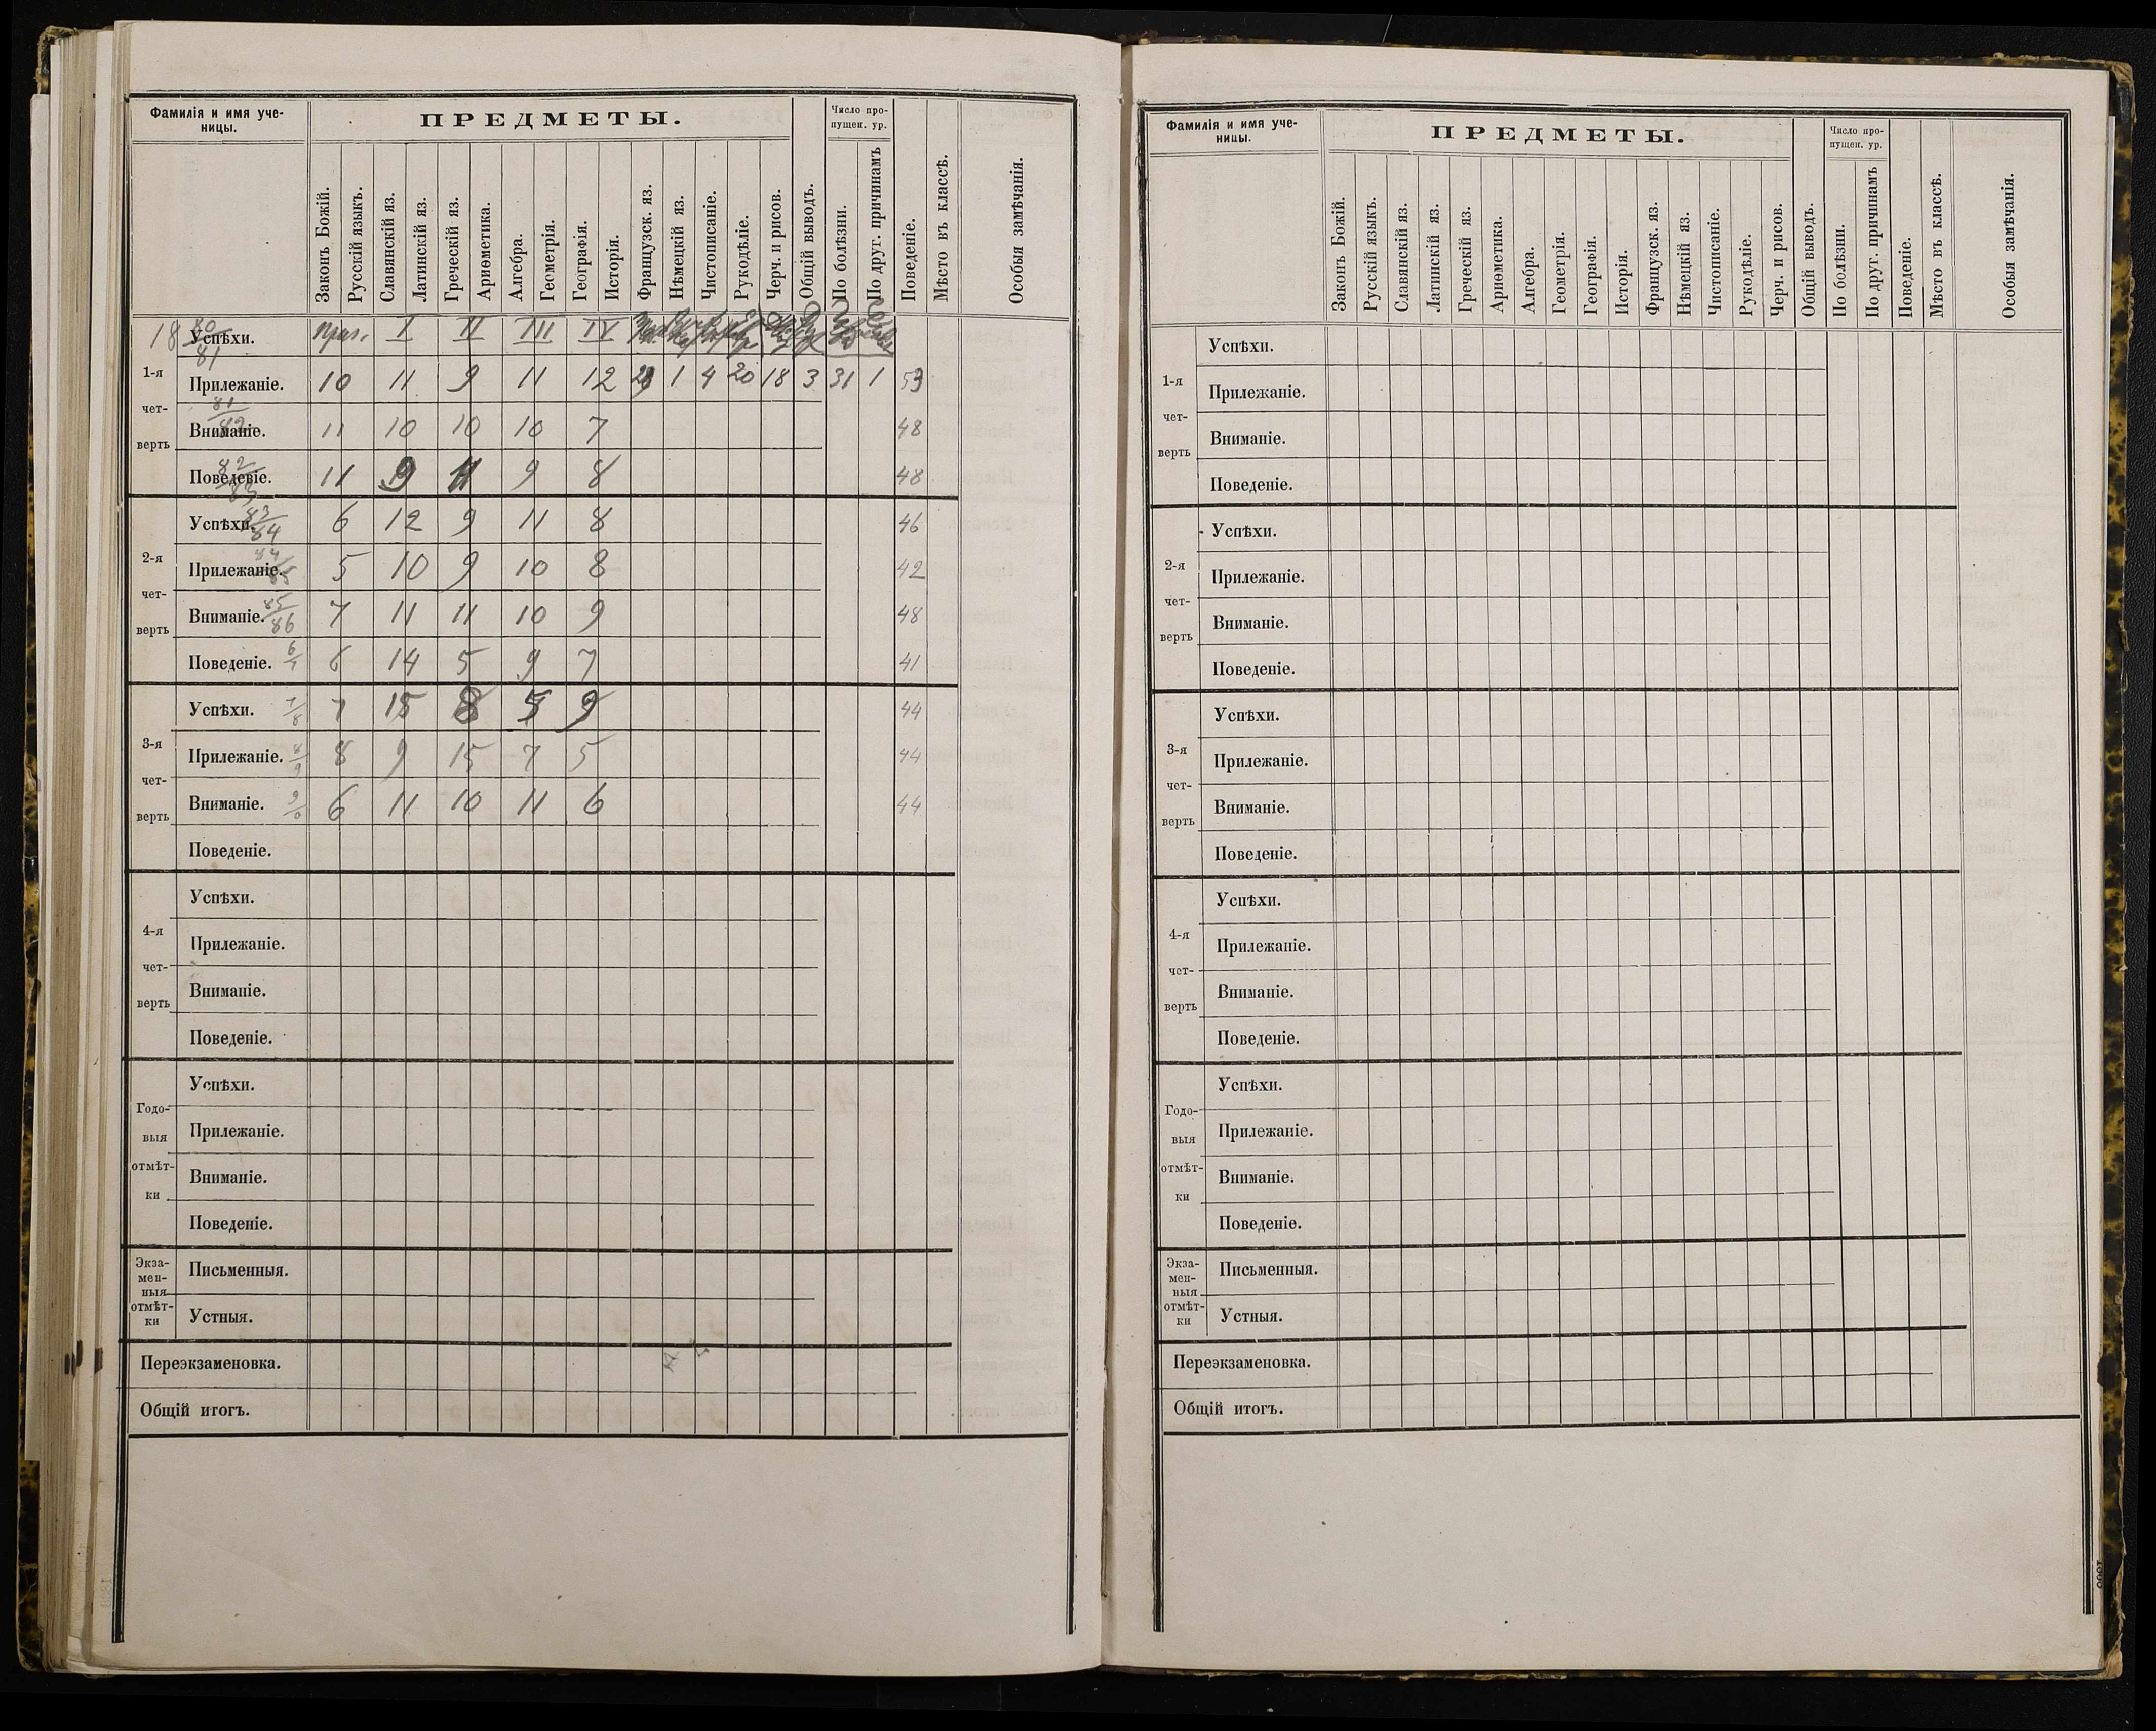 Фамилія и имя уче-
ницы.
ПРЕДМЕТЫ.
Число про-
пущен. ур.
Законъ Божій.
Русскій языкъ.
Славянскій яз.
Латинскій яз.
Греческій яз.
Ариѳметика.
Алгебра.
Геометрія.
Географія.
Исторія.
Французск. яз.
Нѣмецкій яз.
Чистописаніе.
Рукодѣліе.
Черч. и рисов.
Общій выводъ.
По болѣзни.
По друг. причинамъ
Поведеніе.
Мѣсто въ классѣ.
Особыя замѣчанія.
1-я
чет-
верть
18 80/81 Успѣхи. I II III IV
Прилежаніе. 10 11 9 11 12 1 4 20 18 3 31 1 53
81/82 Вниманіе. 11 10 10 10 7 48
82/83 Поведеніе. 11 9 11 9 8 48
2-я
чет-
верть
83/84 Успѣхи. 6 12 9 11 8 46
84/85 Прилежаніе. 5 10 9 10 8 42
85/86 Вниманіе. 7 11 11 10 9 48
Поведеніе. 6/7 6 14 5 9 7 41
3-я
чет-
верть
Успѣхи. 7/8 7 15 8 5 9 44
Прилежаніе. 8/9 8 9 15 7 5 44
Вниманіе. 9/0 6 11 10 11 6 44
Поведеніе.
4-я
чет-
верть
Успѣхи.
Прилежаніе.
Вниманіе.
Поведеніе.
Годо-
выя
отмѣт-
ки
Успѣхи.
Прилежаніе.
Вниманіе.
Поведеніе.
Экза-
мен-
ныя
отмѣт-
ки
Письменныя.
Устныя.
Переэкзаменовка.
Общій итогъ.
Фамилія и имя уче-
ницы.
ПРЕДМЕТЫ.
Число про-
пущен. ур.
Законъ Божій.
Русскій языкъ.
Славянскій яз.
Латинскій яз.
Греческій яз.
Ариѳметика.
Алгебра.
Геометрія.
Географія.
Исторія.
Французск. яз.
Нѣмецкій яз.
Чистописаніе.
Рукодѣліе.
Черч. и рисов.
Общій выводъ.
По болѣзни.
По друг. причинамъ
Поведеніе.
Мѣсто въ классѣ.
Особыя замѣчанія.
1-я
чет-
верть
Успѣхи.
Прилежаніе.
Вниманіе.
Поведеніе.
2-я
чет-
верть
Успѣхи.
Прилежаніе.
Вниманіе.
Поведеніе.
3-я
чет-
верть
Успѣхи.
Прилежаніе.
Вниманіе.
Поведеніе.
4-я
чет-
верть
Успѣхи.
Прилежаніе.
Вниманіе.
Поведеніе.
Годо-
выя
отмѣт-
ки
Успѣхи.
Прилежаніе.
Вниманіе.
Поведеніе.
Экза-
мен-
ныя
отмѣт-
ки
Письменныя.
Устныя.
Переэкзаменовка.
Общій итогъ.